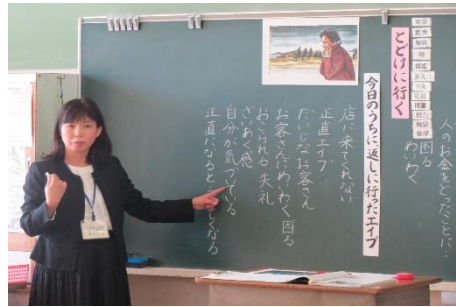 人のお金をとったことに…
困る
めいわく
とどけに行く
今日のうちに、返しに行ったエイブ
店に来てくれない
正直エイブ
だいじなお客さん
お客さんがめいわく 困る
おこられる 失礼
ざいあく感
自分が気づいている
正直になると
くなる